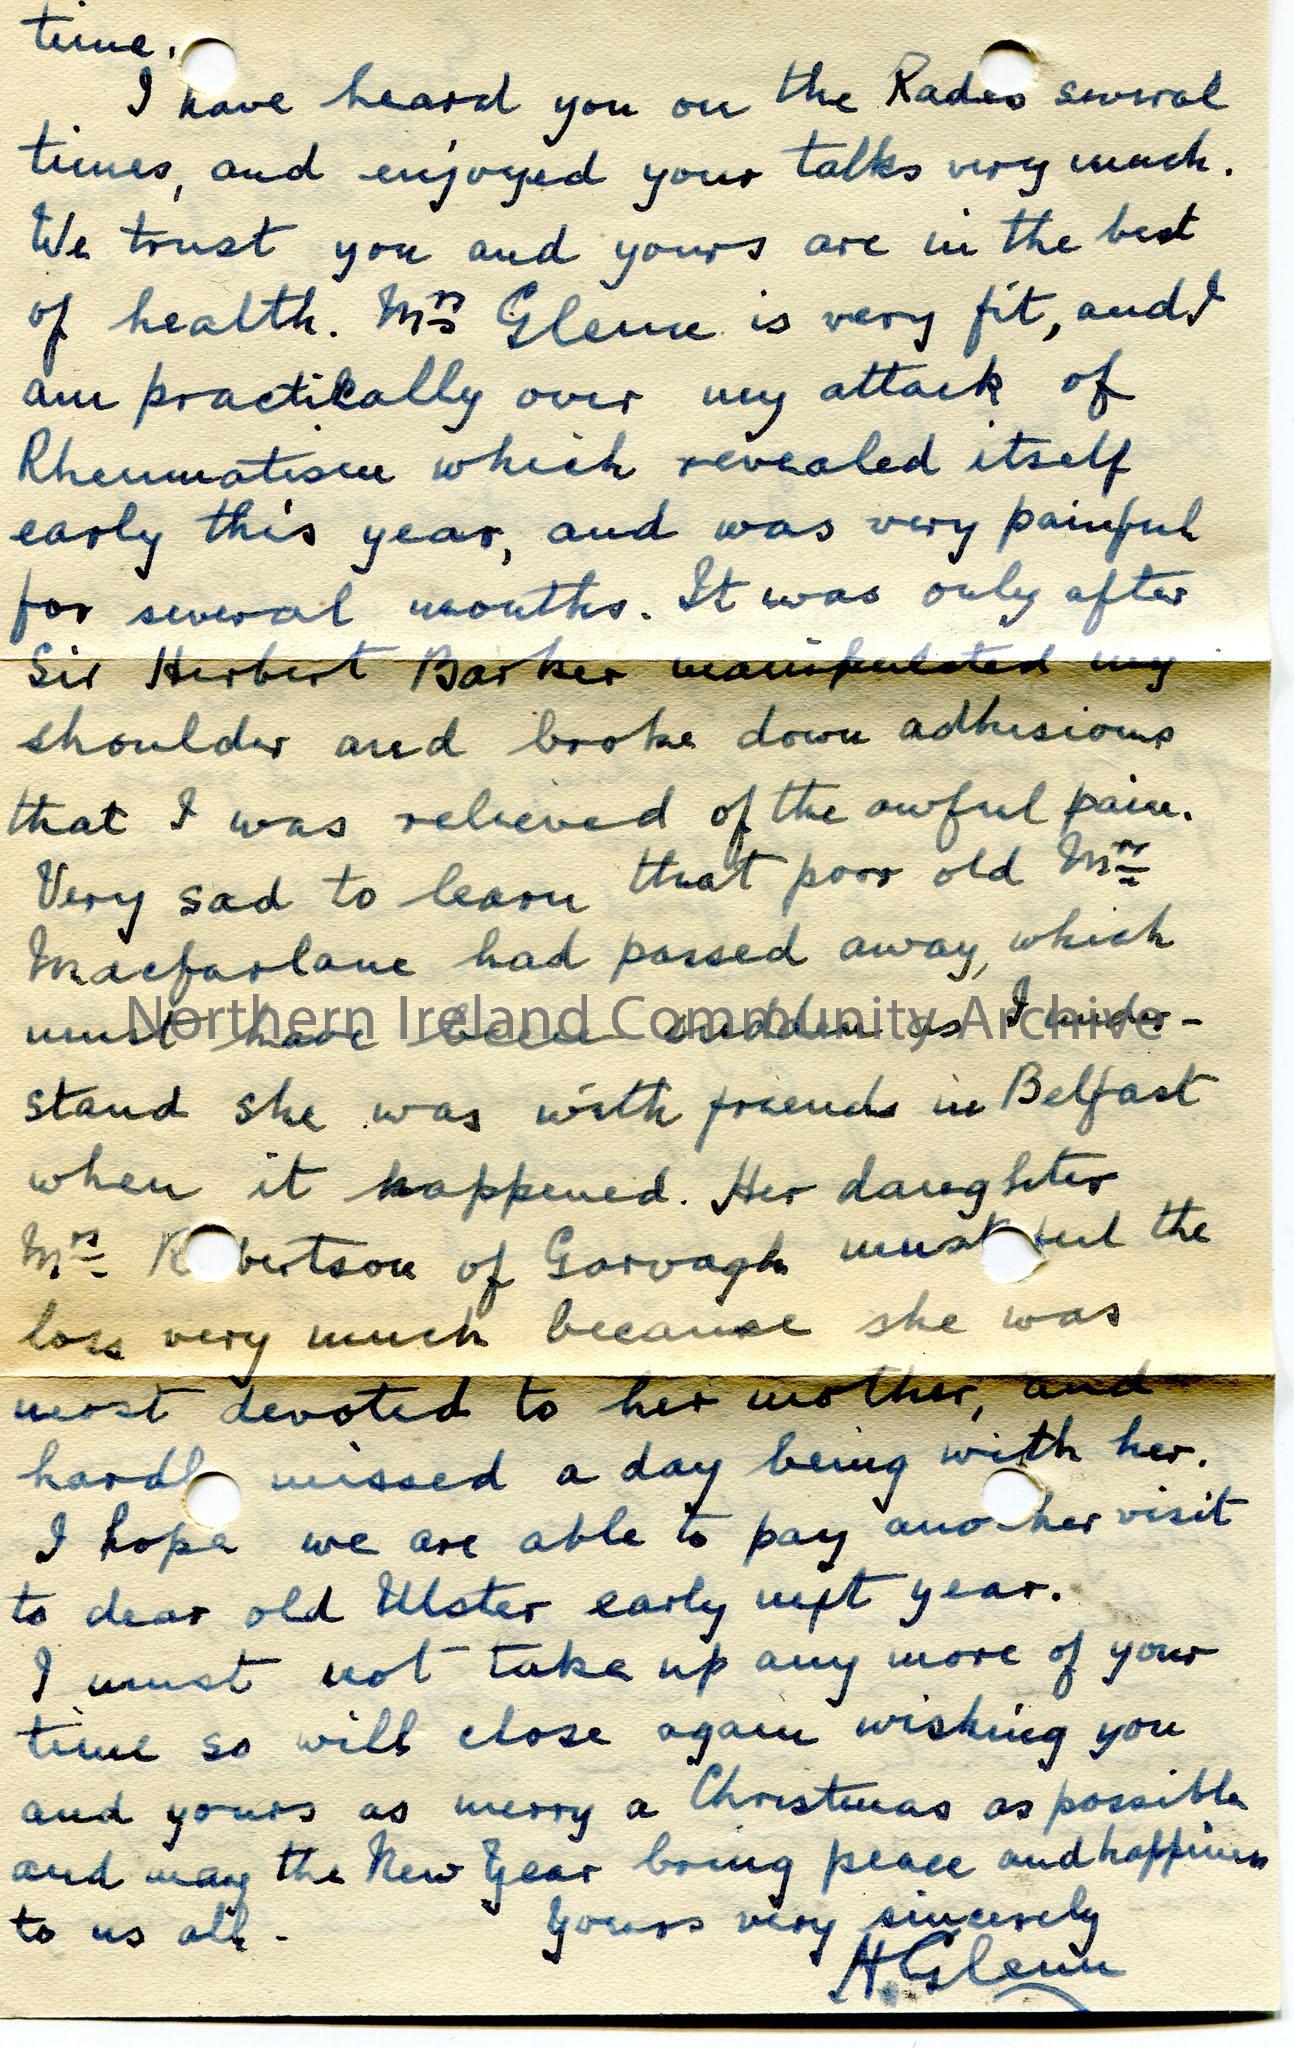 time.
I have heard you on the Radio several
times, and enjoyed your talks very much.
We trust you and yours are in the best
of health. Mrs Glenn is very fit, and I
am practically over my attack of
Rheumatism which revealed itself
early this year, and was very painful
for several months. It was only after
Sir Herbert Barker manipulated my
shoulder and broke down adhesions
that I was relieved of the awful pain.
Very sad to learn that poor old Mrs
Macfarlane had passed away, which
must have been sudden as I under-
Northern Ireland Community Archive
stand she was with friends in Belfast
when it happened. Her daughter
Mrs Robertson of Garvagh must feel the
loss very much because she was
most devoted to her mother, and
hardly missed a day being with her.
I hope we are able to pay another visit
to dear old Ulster early next year.
I must not take up any more of your
time so will close again wishing you
and yours as merry a Christmas as possible
and may the New Year bring peace and happiness
to us all -
Yours very sincerely
H. Glenn